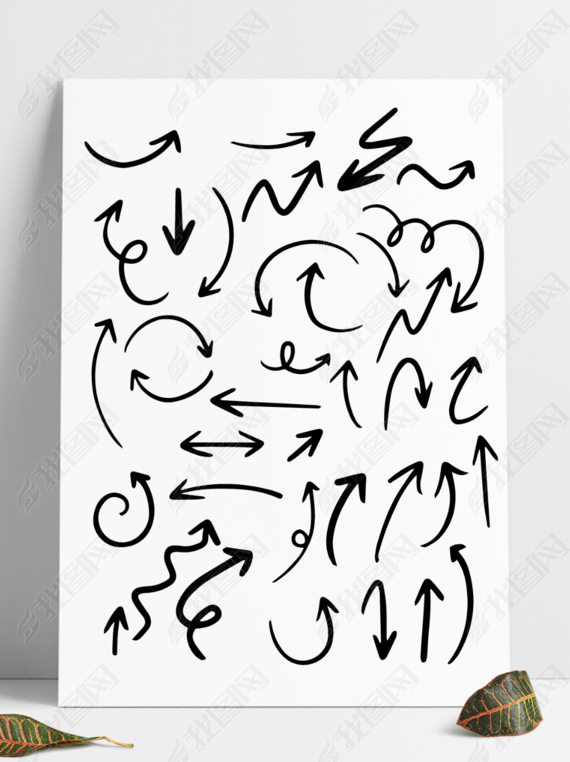 我图网